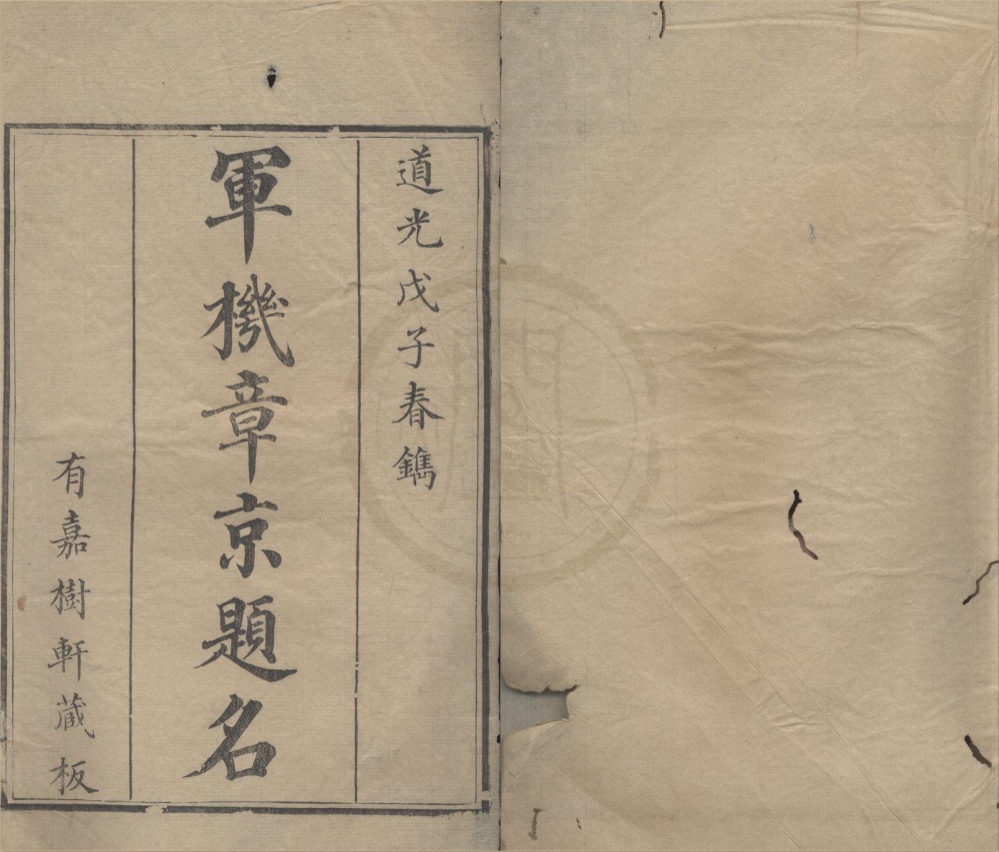 道光戊子春鐫
軍機章京題名
有嘉樹軒藏板